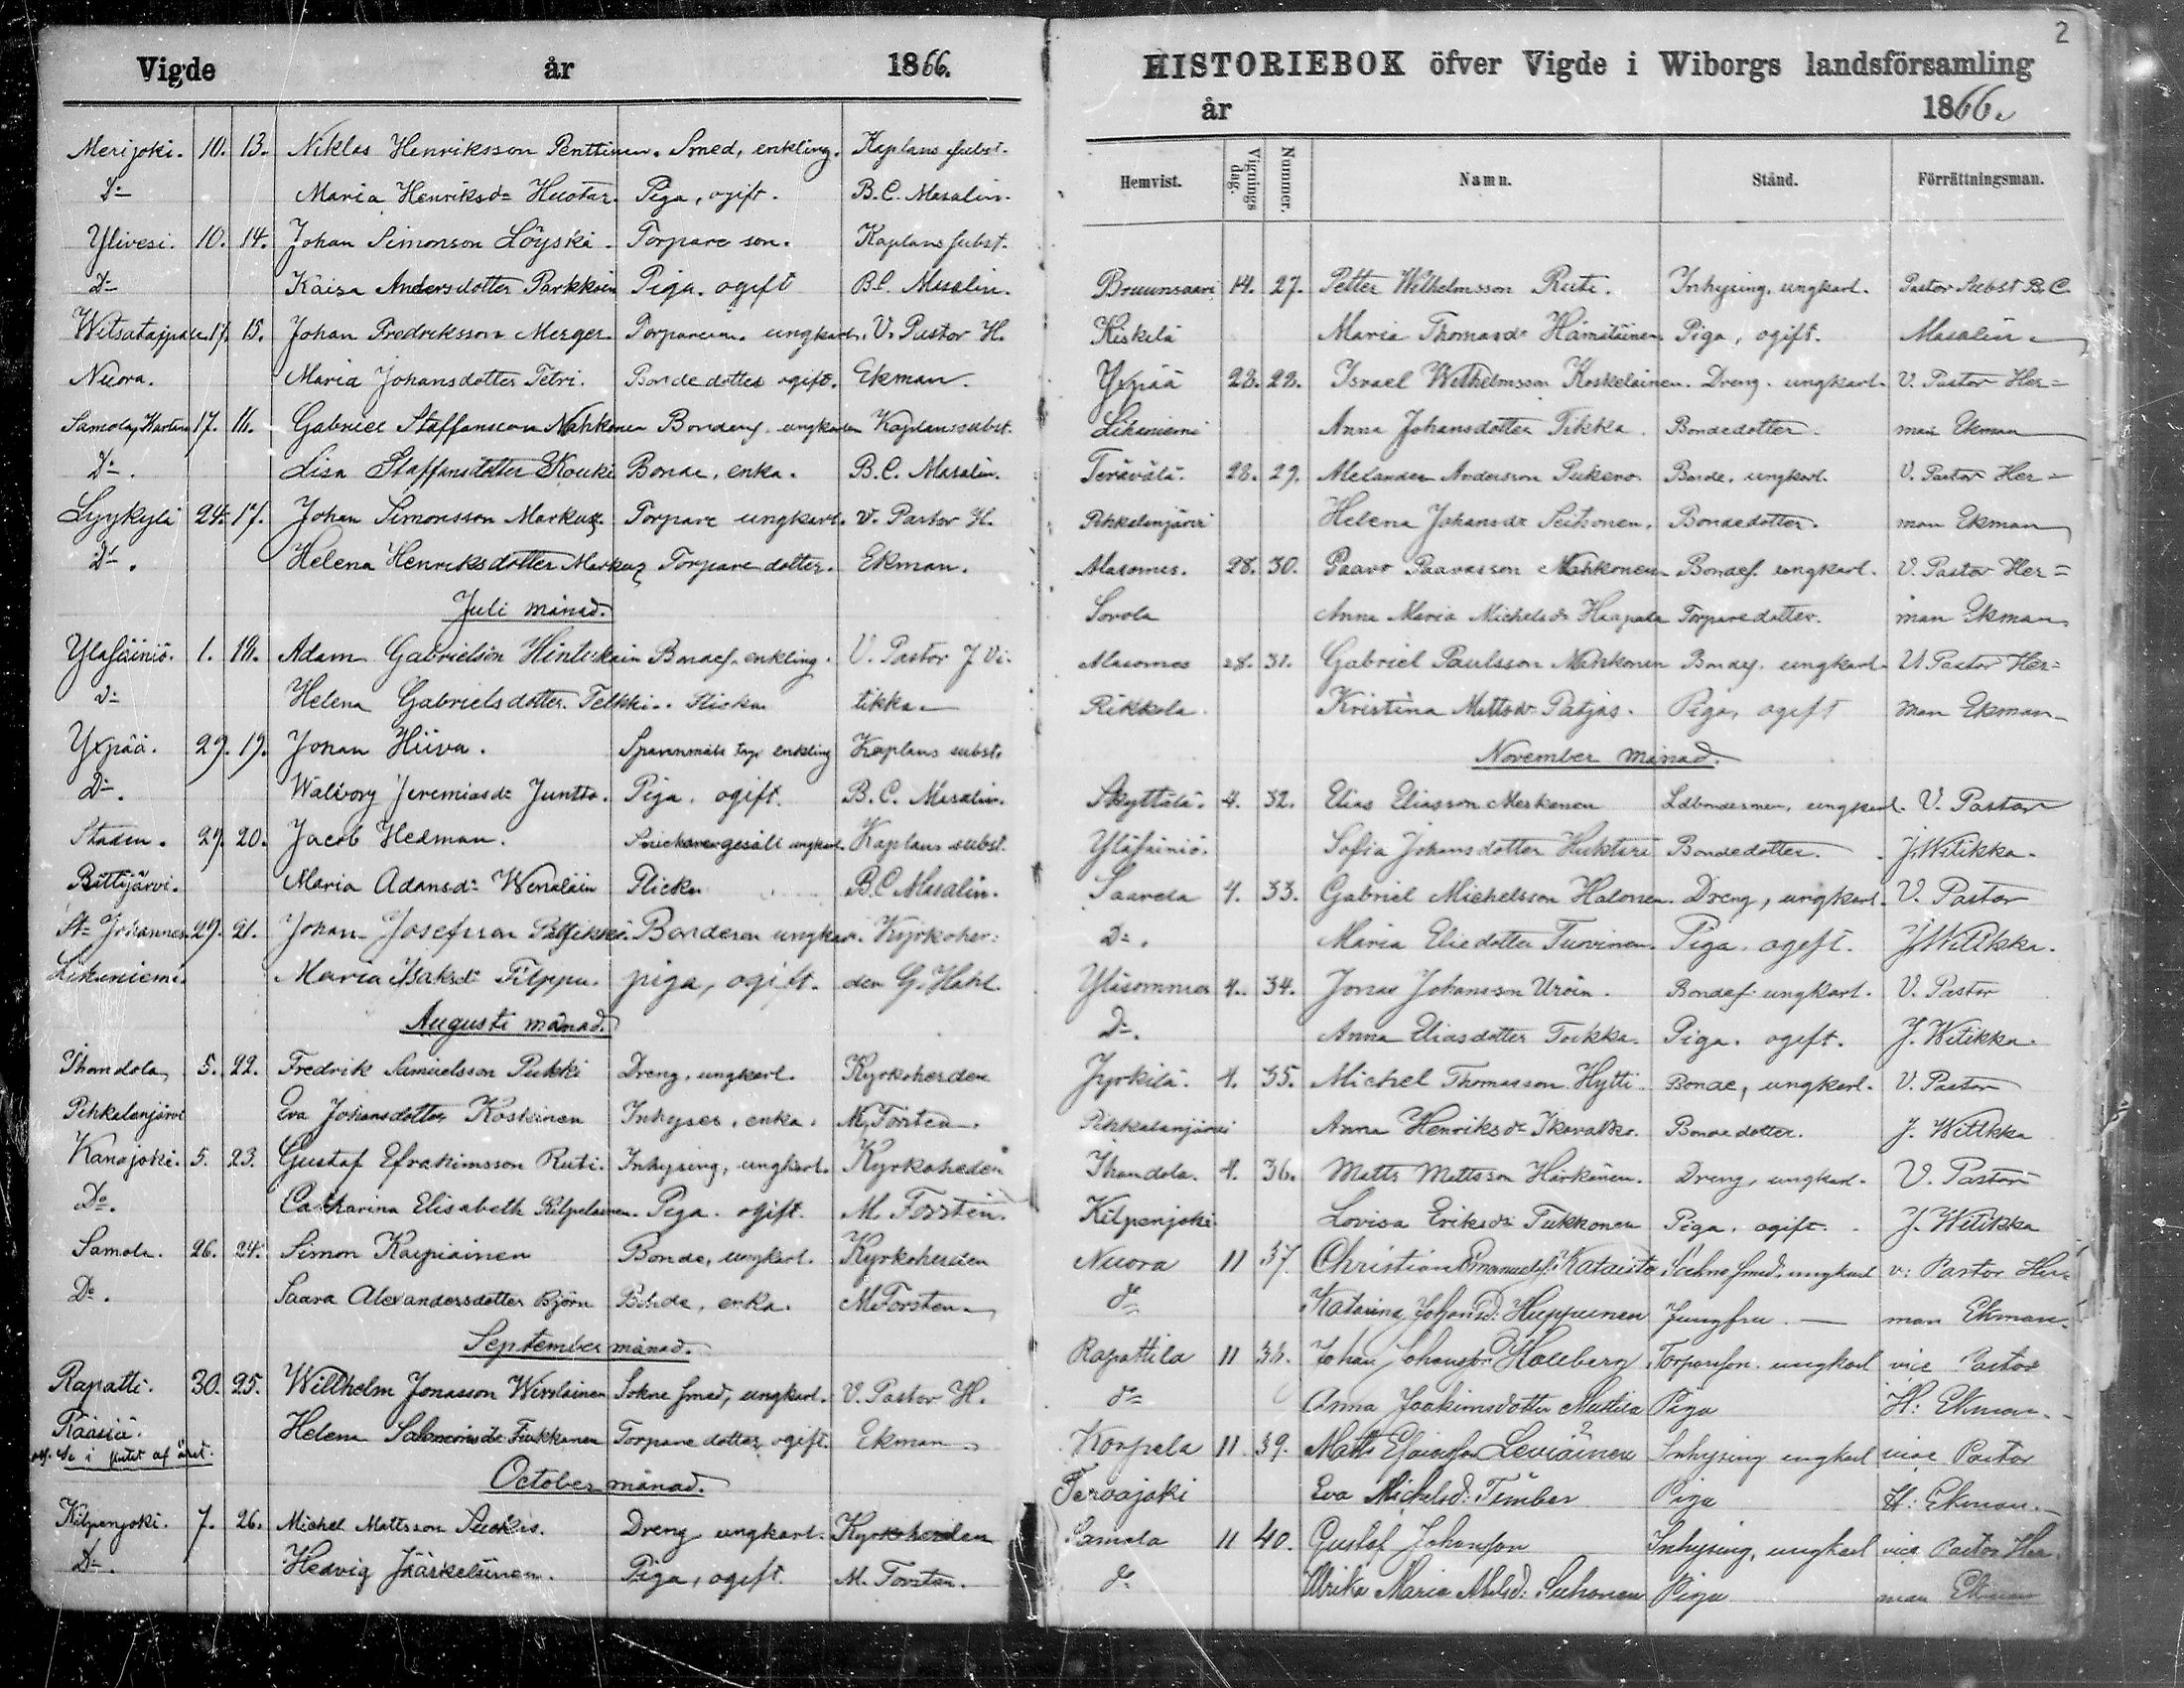 Vigde år 1866.
Merijoki. 10. 13. Niklas Henriksson Penttinen. Smed, enkling. Kaplans subst.
Do Maria Henriksdr Huotar. Piga, ogift. B.C. Masalin.
Ylivesi. 10. 14. Johan Simonson Löyskä. Torpare son. Kaplans subst.
Do Kaisa Andersdotter Parkkoin Piga. ogift B.C. Masalin.
17. 15. Johan Fredriksson Merger. ungkarl. V. Pastor H.
Nuora. Maria Johansdotter Petri. Bonde dotter ogift. Ekman.
Samola, 17. 16. Gabriel Staffansson Nahkonen Bondes. Kaplanssubst.
Do. Lisa Staffansdotter Kouki Bonde, enka. B.C. Masalin.
Lyykylä 24. 17. Johan Simonsson Markuz. Torpare ungkarl. V. Pastor H.
Do. Helena Henriksdotter Markuz Torpare dotter. Ekman.
Juli månad.
Yläsäiniö. 1. 18. Adam Gabrielson Bondes. enkling. V. Pastor J. Vi-
Do Helena Gabrielsdotter Telkki. Flicka tikka
Yxpää. 29. 19. Johan Hiiva. enkling Kaplans subst.
Do. Walborg Jeremiasdr Juntto. Piga. ogift. B.C. Masalin.
Staden. 29. 20. Jacob Hedman. ungkarl. Kaplans subst.
Maria Adamsdr Flicka B.C. Masalin.
St. Johannes 29. 21. Johan Josefsson Bondeson ungkarl. Kyrkoher-
Likuniemi. Maria Isaksdr Filppu. piga, ogift. den G. Hahl.
Augusti månad.
Ihandola, 5. 22. Fredrik Samuelsson Pukki Dreng, ungkarl. Kyrkoherden
Pihkalanjärvi Eva Johansdotter Koskinen Inhyses, enka. M. Forstén.
Kanajoki. 5. 23. Gustaf Efraimsson Ruti. Inhysing, ungkarl. Kyrkoheden
Do. Catharina Elisabeth Kilpelainen. Piga. ogift. M. Forstén.
Samola. 26. 24. Simon Karpiainen Bonde, ungkarl. Kyrkoherden
Do. Saara Alexandersdotter Björn Bonde, enka. M. Forsten
September månad.
Rapatti. 30. 25. Willhelm Jonasson Sokne smed, ungkarl. V. Pastor H.
Rääsiä. Helena Tukkanen Torpare dotter, ogift. Ekman
se i slutet af året.
October månad.
Kilpenjoki. 7. 26. Michel Mattsson Dreng ungkarl. Kyrkoherden
Do. Hedvig Jääskeläinen. Piga, ogift. M. Forsten.
2
HISTORIEBOK öfver Vigde i Wiborgs landsförsamling
år 1866.
Hemvist. Vignings dag. Nummer. Namn. Stånd. Förrättningsman.
Bruunsaari 14. 27. Petter Wilhelmsson Ruti. Inhysing. ungkarl. Pastor Subst B.C.
Kiskilä Maria Thomasdr Hämäläinen Piga, ogift. Masalin
Yxpää 28. 28. Israel Wilhelmsson Koskelainen. Dreng. ungkarl. V. Pastor Her-
Likuniemi Anna Johansdotter Tikka. Bondedotter. man Ekman
Terävälä. 28. 29. Andersson Pukero Bonde. ungkarl. V. Pastor Her-
Pihkalanjärvi Helena Johansdr Seitsonen. Bondedotter. man Ekman
Alasomes. 28. 30. Paavo Paavosson Nahkonen Bondes. ungkarl. V. Pastor Her-
Sorola Anna Maria Michelsdr Haapala Torparedotter. man Ekman
Alasomes 28. 31. Gabriel Paulsson Nahkonen Bondes. ungkarl. V. Pastor Her-
Rikkola. Kristina Mattsdr Patjas. Piga, ogift man Ekman
November månad.
Skyttälä. 4. 32. Elias Eliasson Merkanen ungkarl. V. Pastor
Yläsäiniö. Sofia Johansdotter Bondedotter. J. Witikka.
Saarela 4. 33. Gabriel Michelsson Halonen. Dreng, ungkarl. V. Pastor
Do. Maria Eliedotter Turvinen. Piga. ogift. J. Witikka.
Yläsommes 4. 34. Jonas Johansson Bondes. ungkarl. V. Pastor
Do. Anna Eliasdotter Toikka. Piga. ogift. J. Witikka.
Jyrkilä. 4. 35. Michel Thomasson Hytti. Bonde, ungkarl. V. Pastor
Pihkalanjärvi Anna Henriksdr Ikavalko. Bondedotter. J. Witikka
Ihandola. 4. 36. Matts Mattsson Härkönen. Dreng, ungkarl. V. Pastor
Kilpenjoki. Lovisa Eriksdr Tukkonen Piga. ogift. J. Witikka
Nuora 11 37. Christian Emanuelss. Kataisto Sockne smed. ungkarl v: Pastor Her-
do Katarina Johansd: Huppunen Jungfru. man Ekman.
Rapattila 11 38. Johan Johansson Halleberg Torpareson. ungkarl vice Pastor
do Anna Joakimsdotter Mattila Piga H: Ekman.
Korpela 11 39. Matts Esaiasson Leviäinen Inhysing ungkarl vice Pastor
Tervajoki Eva Michelsd: Timber Piga H: Ekman.
Samola 11 40. Gustaf Johansson Inhysing, ungkarl vice Pastor Her-
do Ulrika Maria Abelsd: Suhonen Piga man Ekman